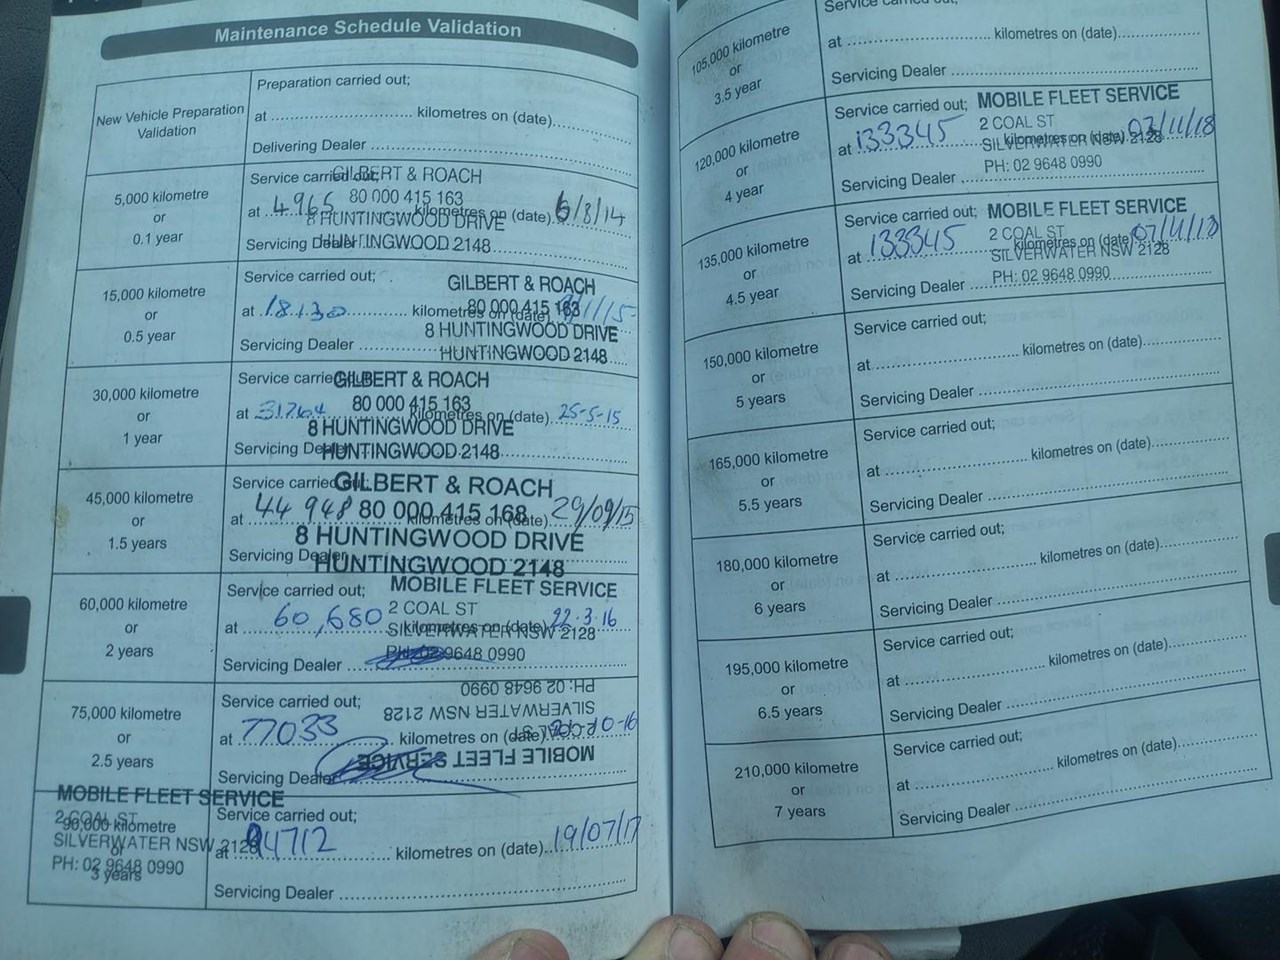 Maintenance Schedule Validation
New Vehicle Preparation
Validation
Preparation carried out;
at ........................ kilometres on (date)............
Delivering Dealer ........................
5,000 kilometre
or
0.1 year
Service carried out;
GILBERT & ROACH
80 000 415 163
at 4965 kilometres on (date) 6/8/14
8 HUNTINGWOOD DRIVE
Servicing Dealer HUNTINGWOOD 2148
15,000 kilometre
or
0.5 year
Service carried out;
GILBERT & ROACH
80 000 415 163
at 18130 kilometres on (date) /1/15
8 HUNTINGWOOD DRIVE
Servicing Dealer ............
HUNTINGWOOD 2148
30,000 kilometre
or
1 year
Service carried
GILBERT & ROACH
80 000 415 163
at 31764 kilometres on (date) 25-5-15
8 HUNTINGWOOD DRIVE
Servicing Dealer HUNTINGWOOD 2148
45,000 kilometre
or
1.5 years
Service carried
GILBERT & ROACH
at 44 948 80 000 415 168 kilometres on (date) 29/09/15
8 HUNTINGWOOD DRIVE
Servicing Dealer
HUNTINGWOOD 2148
60,000 kilometre
or
2 years
Service carried out;
MOBILE FLEET SERVICE
2 COAL ST
at 60,680 kilometres on (date) 22-3-16
SILVERWATER NSW 2128
PH: 02 9648 0990
Servicing Dealer ............
75,000 kilometre
or
2.5 years
Service carried out;
PH: 02 9648 0990
SILVERWATER NSW 2128
at 77033 kilometres on (date) 0-16
2 COAL ST
MOBILE FLEET SERVICE
Servicing Dealer ............
MOBILE FLEET SERVICE
2 COAL ST
90,000 kilometre
SILVERWATER NSW 2128
or
PH: 02 9648 0990
3 years
Service carried out;
at 94712 kilometres on (date) 19/07/17
Servicing Dealer ........................
105,000 kilometre
or
3.5 year
Service carried out;
at ........................ kilometres on (date)............
Servicing Dealer ........................
120,000 kilometre
or
4 year
Service carried out; MOBILE FLEET SERVICE
2 COAL ST
at 133345 kilometres on (date) 07/11/18
SILVERWATER NSW 2128
PH: 02 9648 0990
Servicing Dealer ............
135,000 kilometre
or
4.5 year
Service carried out; MOBILE FLEET SERVICE
2 COAL ST
at 133345 kilometres on (date) 07/11/18
SILVERWATER NSW 2128
PH: 02 9648 0990
Servicing Dealer ............
150,000 kilometre
or
5 years
Service carried out;
at ........................ kilometres on (date)............
Servicing Dealer ........................
165,000 kilometre
or
5.5 years
Service carried out;
at ........................ kilometres on (date)............
Servicing Dealer ........................
180,000 kilometre
or
6 years
Service carried out;
at ........................ kilometres on (date)............
Servicing Dealer ........................
195,000 kilometre
or
6.5 years
Service carried out;
at ........................ kilometres on (date)............
Servicing Dealer ........................
210,000 kilometre
or
7 years
Service carried out;
at ........................ kilometres on (date)............
Servicing Dealer ........................